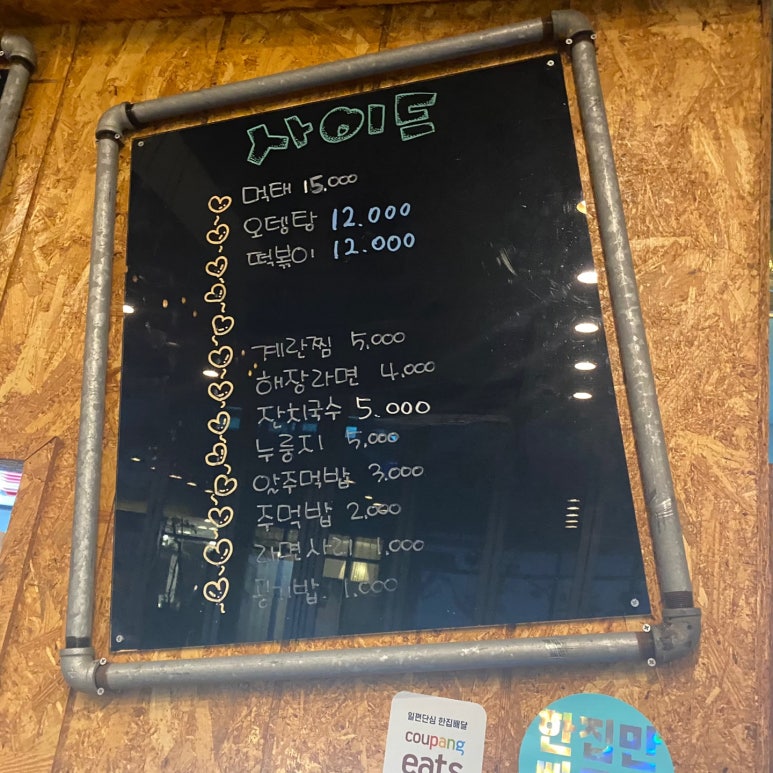 사이드
먹태 15.000
오뎅탕 12.000
떡볶이 12.000
계란찜 5,000
해장라면 4.000
잔치국수 5.000
누룽지 5,000
알주먹밥 3.000
주먹밥 2,000
라면사리 1,000
공기밥 1.000
일편단심 한집배달
coupang
eats
한집만